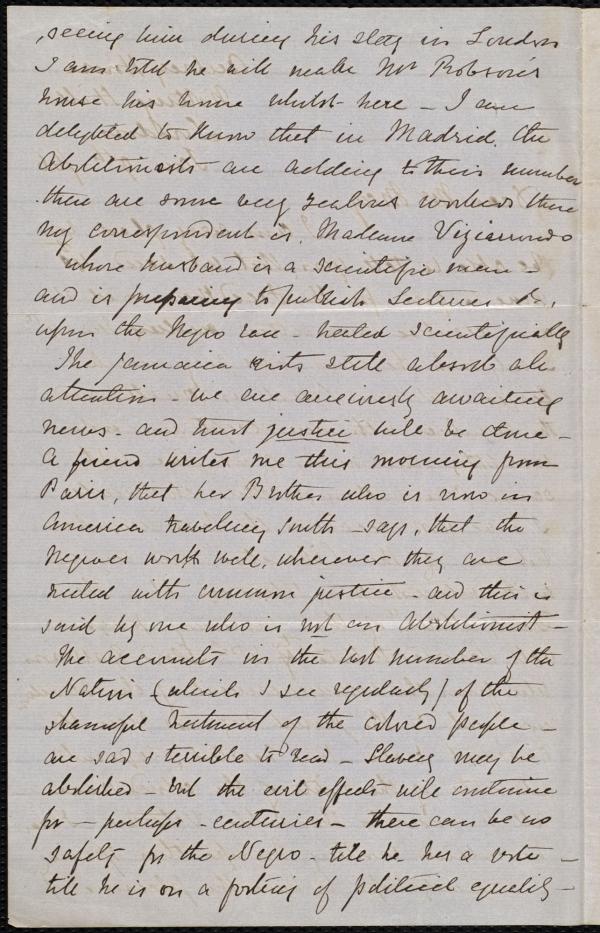 seeing him during his stay in London
I am told he will make Mr Robson's
house his home whilst here - I am
delighted to know that in Madrid, the
Abolitionists are adding to their number
there are some very zealous workers there
my correspondent is, Madame Vizcarrondo
whose husband is a scientific man -
and is preparing to publish Lectures &c,
upon the Negro race - treated scientifically
The Jamaica riots still absorb all
attention - we are anxiously awaiting
news - and trust justice will be done -
A friend writes me this morning from
Paris, that her Brother who is now in
America travelling South - says, that the
Negroes work well, wherever they are
treated with common justice - and this is
said by one who is not an Abolitionist -
The accounts in the last number of the
Nation (which I see regularly) of the
shameful treatment of the colored people -
are sad & terrible to read - Slavery may be
abolished - but the evil effects will continue
for - perhaps - centuries - there can be no
safety for the Negro - till he has a vote -
till he is on a footing of political equality -